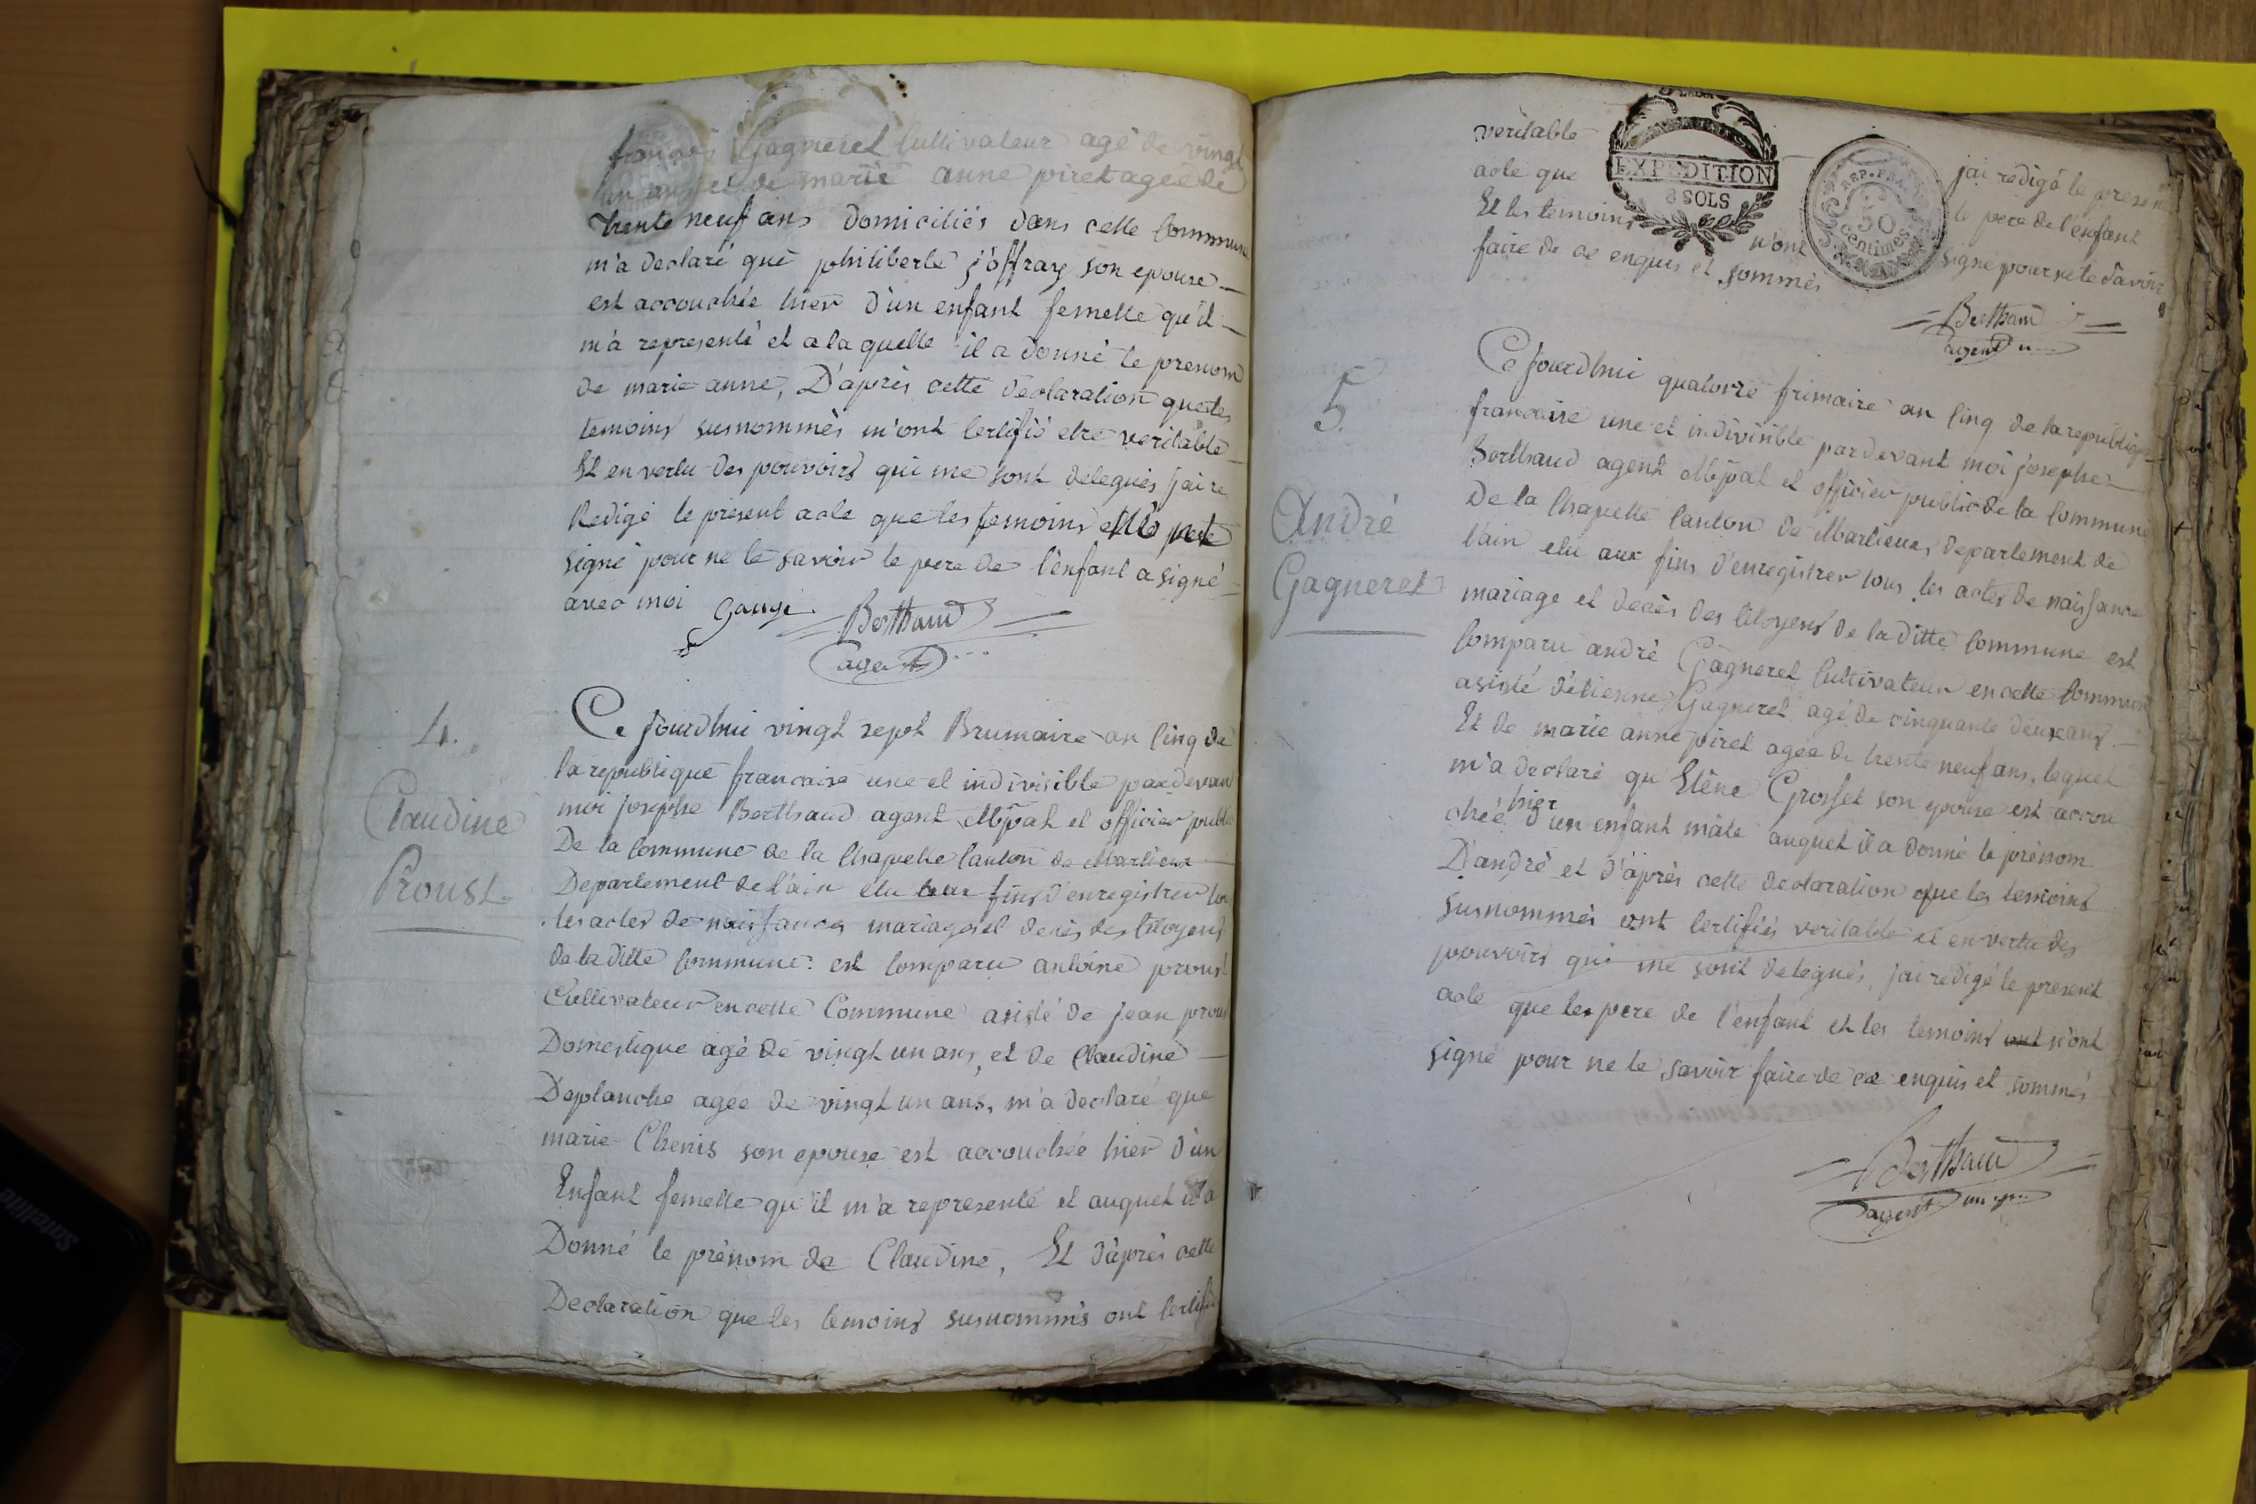 françois Gagneret Cultivateur agé de vingt
un ans et de marie anne piret agée de
trente neuf ans domiciliés dans cette Commune
m'a declaré que philiberte joffray son epouse
est accouchée hier d'un enfant femelle qu'il
m'a representé et a laquelle il a donné le prenom
de marie anne, D'après cette declaration que les
temoins susnommés m'ont Certifié etre veritable
Et en vertu des pouvoirs qui me sont delegués jai re
Redigé le present acte que les temoins
signé pour ne le savoir le pere de l'enfant a signé
avec moi
Berthaud
agent
4.
Claudine
Proust
Ce Jourdhui vingt sept Brumaire an Cinq de
la republique francaise une et indivisible pardevant
moi josephe Berthaud agent Mpal et officier public
De la Commune de la Chapelle Canton de Marlieux
Departement de l'ain elu aux fins d'enregistrer tous
les actes de naissances mariages et decès des Citoyens
de la ditte Commune: est Comparu antoine proust
Cultivateur en cette Commune asisté de jean proust
Domestique agé de vingt un ans, et de Claudine
Deplanche agée de vingt un ans, m'a declaré que
marie Chenis son epouse est accouchée hier d'un
Enfant femelle qu'il m'a representé et auquel il a
Donné le prénom de Claudine, Et d'après cette
Declaration que les temoins susnommés ont Certifié
veritable jai redigé le present
acte que le pere de l'enfant
Et les temoins n'ont signé pour ne le savoir
faire de ce enquis et sommés
EXPEDITION
8 SOLS
REP. FRA.
50
centimes
Berthaud
agent
5.
André
Gagneret
Ce Jourdhui quatorze frimaire an Cinq de la republique
francaise une et indivisible pardevant moi josephe
Berthaud agent Mpal et officier public de la Commune
De la Chapelle Canton de Marlieux departement de
l'ain elu aux fins d'enregistrer tous les actes de naissance
mariage et decès des Citoyens de la ditte Commune est
Comparu andré Gagneret Cultivateur en cette Commune
asisté d'etienne Gagneret agé de cinquante deux ans
Et de marie anne piret agée de trente neuf ans, lequel
m'a declaré qu'Elène Grosset son epouse est accou
chée hier d'un enfant mâle auquel il a donné le prénom
D'andré et d'après cette declaration que les temoins
susnommés ont Certifiés veritable et en vertu des
pouvoirs qui me sont delegués, jai redigé le present
acte que le pere de l'enfant et les temoins ont n'ont
signé pour ne le savoir faire de ce enquis et sommés
Berthaud
agent